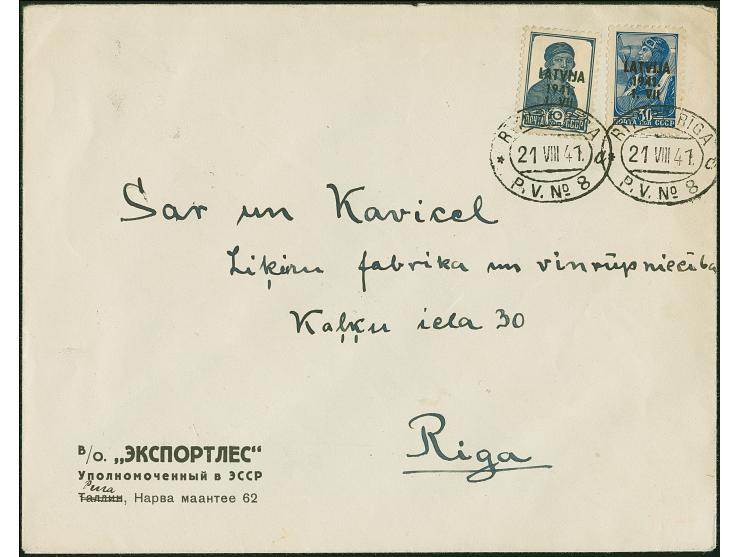 LATVIJA
1941
1. VII
10
ПОЧТА СССР
LATVIJA
1941
1. VII
30
ПОЧТА СССР
RIGA
21 VIII 41.
d
P. V. № 8
RIGA
21 VIII 41.
d
P. V. № 8
Sar un Kavicel
Liķiru fabrika un vinrūpniecība
Kaļķu iela 30
Riga
В/о. „ЭКСПОРТЛЕС“
Уполномоченный в ЭССР
Рига
Таллин, Нарва маантее 62